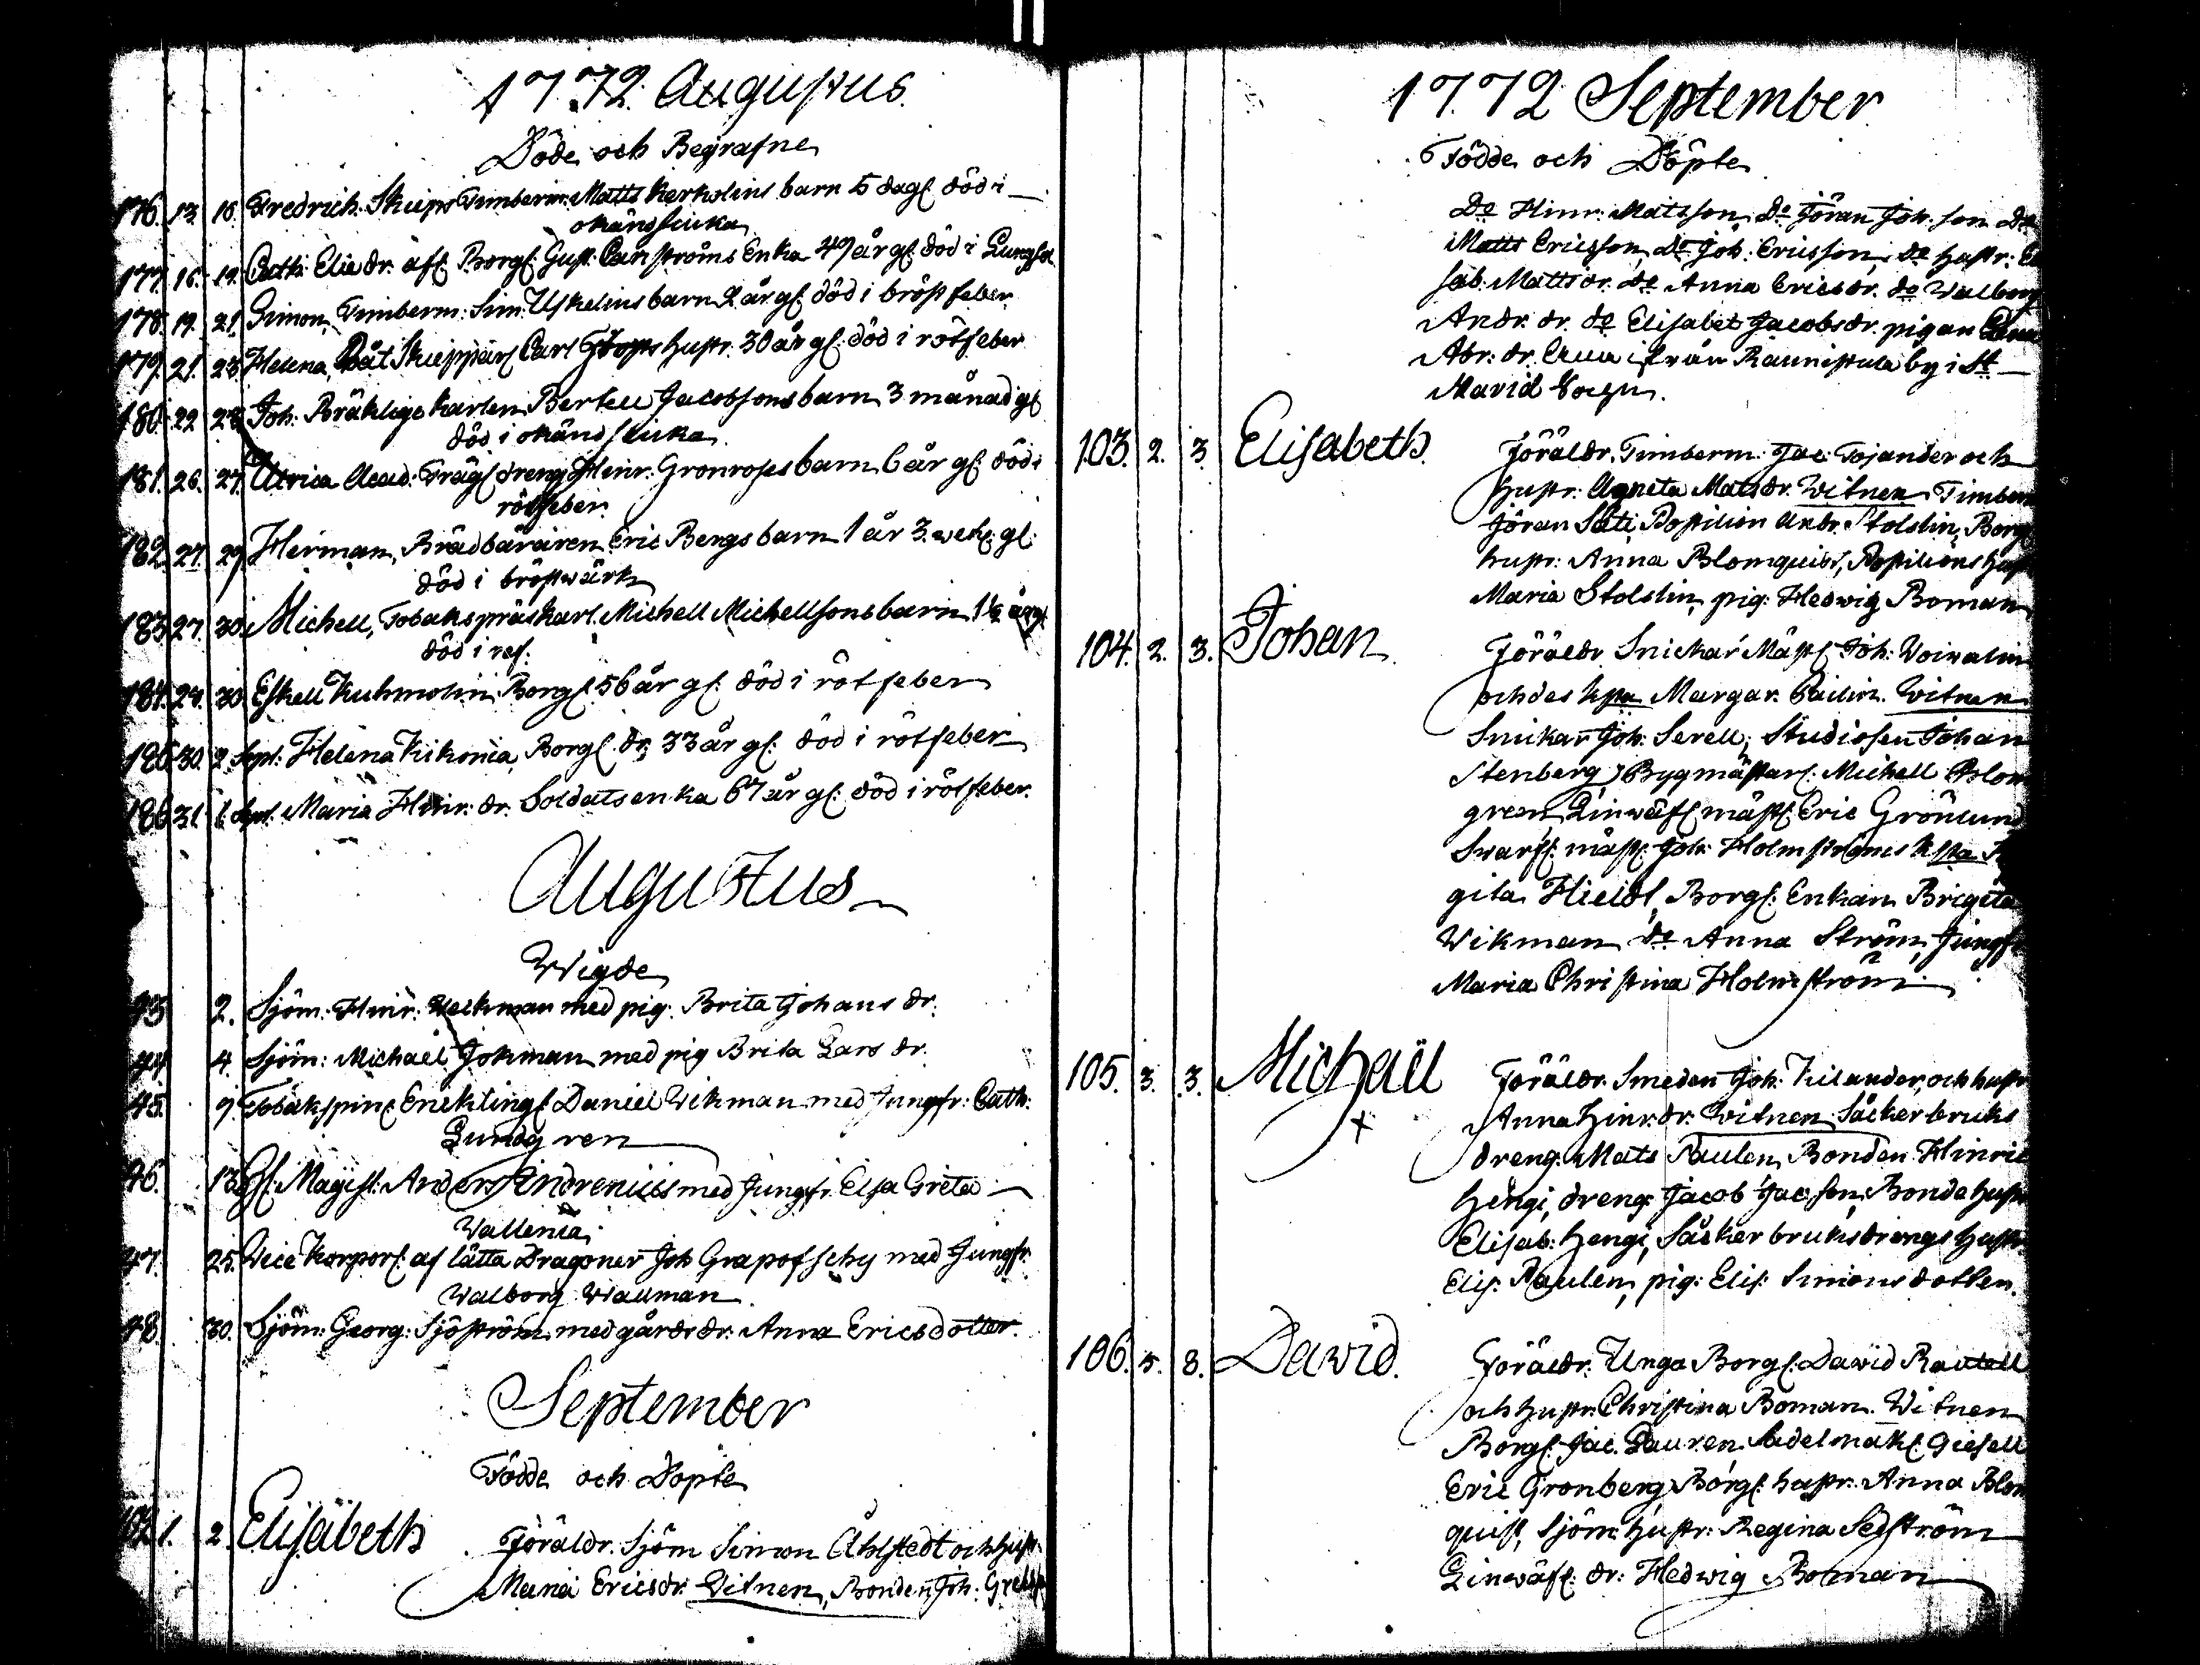 1772 Augustus
Döde och Begrafne
176. 13. 16. Fredrich. Skieps Timberm: Matts barn 5 dag: död i
okänd siuka
177. 16. 19. Cath: Elia dr. afl. Borg: Gust. Carlströms Enka 47 år gl: död i Lungsot
178. 19. 21. Simon, Timberm: Sim: Uskelins barn 2 år gl: död i bröst feber
179. 21. 23. Helena, Båt Skieppar: Carl hustr. 30 år gl: död i rötfeber
180. 22 23 Joh. Bräklige karlen Bertell Jacobsons barn 3 månad gl
död i okänd siuka
181. 26. 27. Ulrica Acad: Trägl: dreng Hinr: Gronroses barn 6 år gl: död i
rötfeber
182. 27. 29 Herman, Brädbäraren Eric Bergs barn 1 år 3. wek: gl:
död i bröstwärk
183 27. 30. Michell, Tobakspräskarl. Michell Michellsons barn 1½ år gl
död i ref:
184. 29. 30 Eskell Kuhmolin Borg: 56 år gl: död i rötfeber
185 30. 2. Sept: Helena Kikonia, Borg: dr, 33 år gl: död i rötfeber
186 31. 6. Sept. Maria Hinr: dr. Soldats enka 67 år gl: död i rötfeber.
Augustus
Wigde
43 2. Sjöm: Hinr: Weckman med pig: Brita Johans dr.
44 4. Sjöm: Michael Johman med pig Brita Lars dr.
45. 9. Tobakspin: Enekling: Daniel Wikman med Jungfr: Cath:
Lundgren
46. 13 H: Magist: Anders Andrenius med Jungfr. Elsa Greta
Wallenia
47. 25. Vice Korpor: af lätta Dragoner Joh Grapofschy med Jungfr
Walborg Wallman
48. 30. Sjöm: Georg: Sjöström med gårdsdr: Anna Ericsdotter.
September
Födde och Döpte
102 1. 2. Elisabeth Föräldr. Sjöm Simon Åhlstedt och hustr.
Maria Ericsdr: Witnen, Bonden Joh:
1772 September
Födde och Döpte
Do Hinr: Matsson, Do Jöran Joh: son Do
Matts Ericsson, Do Joh: Ericsson, Do hustr:
sab: Mattsdr. Do Anna Ericsdr. Do Walborg
Andr. dr. Do Elisabet Jacobsdr. pigan
Abr: dr. ifrån Raunistula by i St
Marid Sochn.
103. 2. 3. Elisabeth. Föräldr. Timberm: Jac: Tojander och
hustr: Agneta Matsdr. Witnen Timberm
Jöran Säti, Postilion Andr. Stolslin, Borg
hustr: Anna Blomquist, Postilions hust
Maria Stolslin, pig: Hedwig Boman
104. 2. 3. Johan Föräldr Snickar Mäst: Joh: Woiwalin
och des kiära Margar. Pailin. Witnen
Snickarn Joh: Serell, Studiosen Johan
Stenberg, Bygmästar: Michell Blom
gren, Linwäf: mäst: Eric Grönlund
Swarf: mäst: Joh: Holmströms
gita Hieldt, Borg: Enkan Brigeta
Wikman Do Anna Ström, Jungfr
Maria Christina Holmström.
105. 3. 3. Michaël Föräldr. Smeden Joh: Kilander, och hustr
x Anna Hinr. dr. Witnen Såckerbruks
dreng: Mats Paulen, Bonden Hinric
Hengi, dreng: Jacob Jacson, Bonde hustr
Elisab: Hengi, Såckerbruksdrengs hustr
Elis: Paulen, pig: Elis: Simons dotter.
106. 5. 8. Dawid. Föräldr. Unga Borg: Dawid Rautell
och hustr: Christina Boman. Witnen
Borg: Jac. Lauren Sadelmak: Giesell
Eric Gronberg, Borg: hustr: Anna Blom
quist, Sjöm: hustr: Regina Sedström
Linwäf: dr: Hedwig Boman